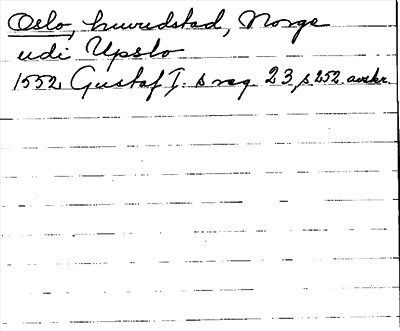 Oslo, huvudstad, Norge
udi Upslo
1552, Gustaf I:s reg 23, s 252. avskr.